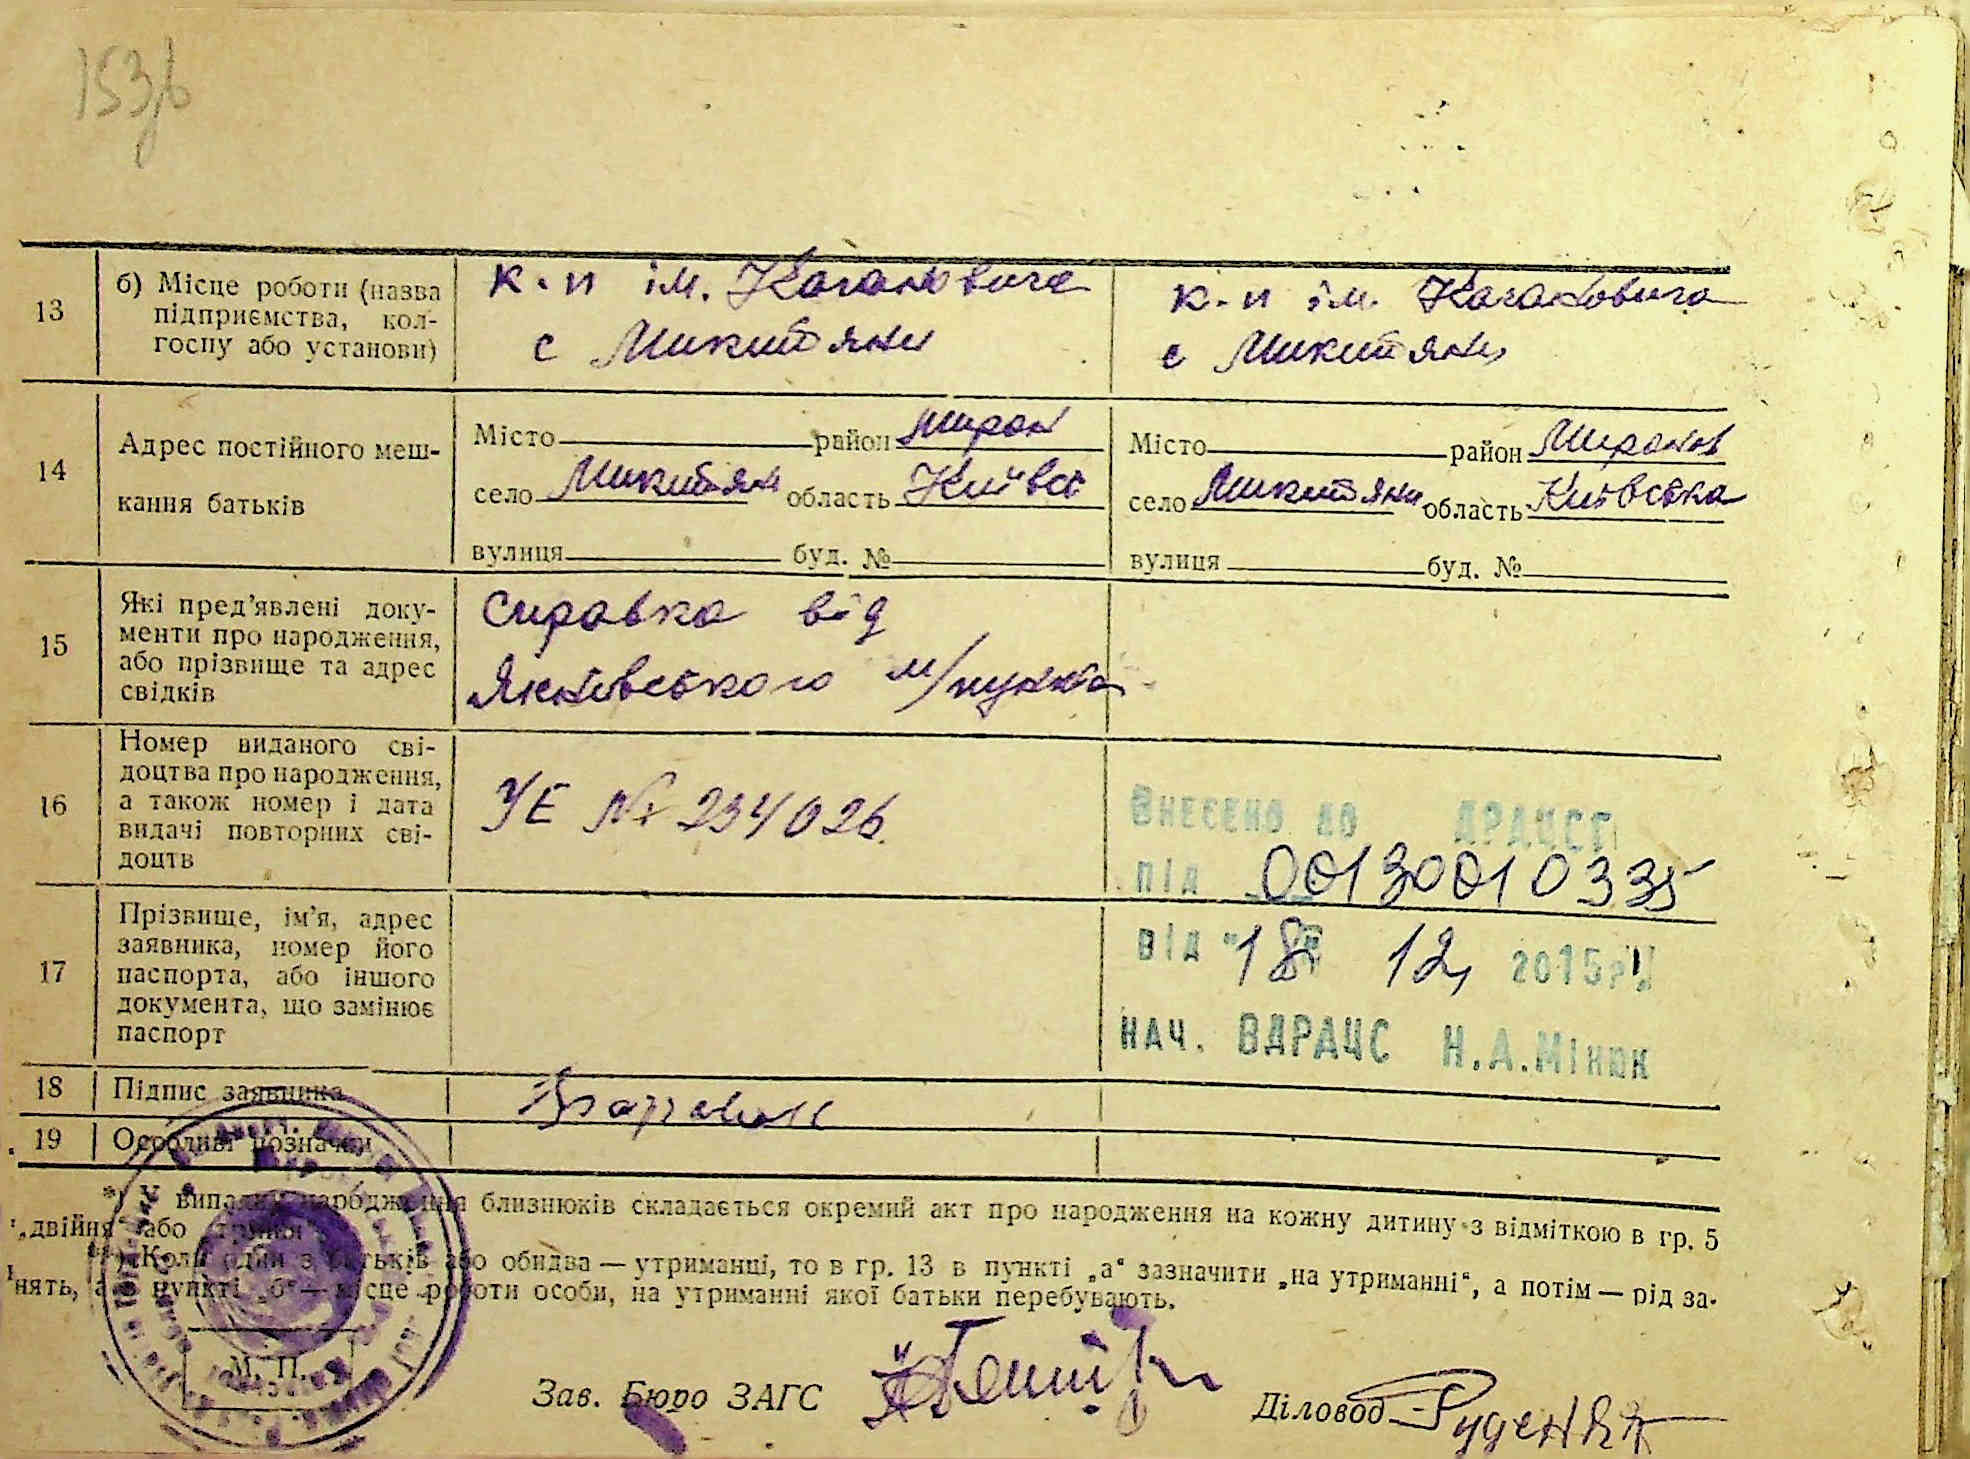 153б
13
б) Місце роботи (назва
підприємства, кол-
госпу або установи)
к-п ім. Кагановича
с Микитяни
к-п ім. Кагановича
с Микитяни
14
Адрес постійного меш-
кання батьків
Місто район Мирон
село Микитян область Київсь
вулиця буд. №
Місто район Миронов
село Микитяни область Київська
вулиця буд. №
15
Які пред’явлені доку-
менти про народження,
або прізвище та адрес
свідків
Справка від
м/пункта
16
Номер виданого сві-
доцтва про народження,
а також номер і дата
видачі повторних сві-
доцтв
УЕ № 234026
ВНЕСЕНО ДО ДРАЦСГ
під 00130010335
17
Прізвище, ім’я, адрес
заявника, номер його
паспорта, або іншого
документа, що замінює
паспорт
від "18" 12, 2015р.
НАЧ. ВДРАЦС Н.А.Мінюк
18
Підпис заявника
19
Особливі позначки
*) У випадку народження близнюків складається окремий акт про народження на кожну дитину з відміткою в гр. 5
„двійня“ або „тройня“.
**) Коли один з батьків або обидва — утриманці, то в гр. 13 в пункті „а“ зазначити „на утриманні“, а потім — рід за-
нять, а в пункті „б“ — місце роботи особи, на утриманні якої батьки перебувають.
М. П.
Зав. Бюро ЗАГС
Діловод Руденко